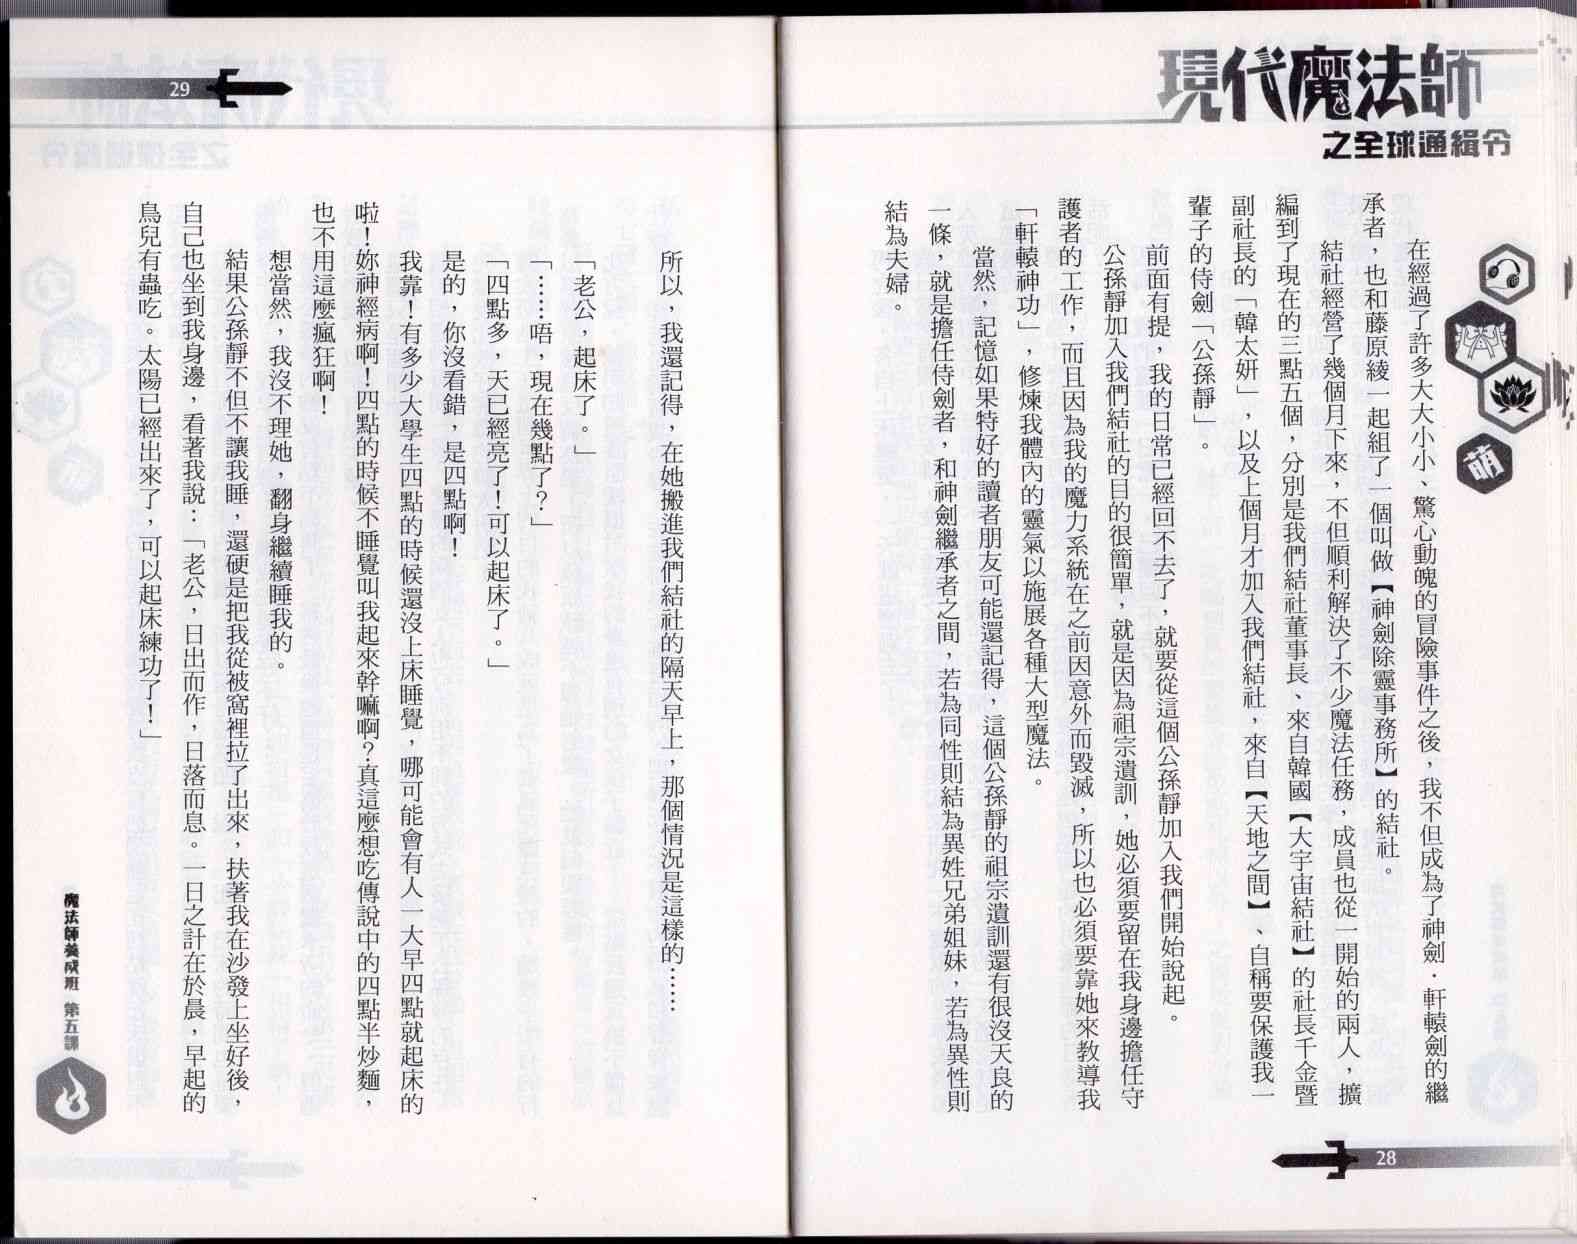 現代魔法師
之全球通緝令
萌
在經過了許多大大小小、驚心動魄的冒險事件之後，我不但成為了神劍．軒轅劍的繼
承者，也和藤原綾一起組了一個叫做【神劍除靈事務所】的結社。
結社經營了幾個月下來，不但順利解決了不少魔法任務，成員也從一開始的兩人，擴
編到了現在的三點五個，分別是我們結社董事長、來自韓國【大宇宙結社】的社長千金暨
副社長的「韓太妍」，以及上個月才加入我們結社，來自【天地之間】、自稱要保護我一
輩子的侍劍「公孫靜」。
前面有提，我的日常已經回不去了，就要從這個公孫靜加入我們開始說起。
公孫靜加入我們結社的目的很簡單，就是因為祖宗遺訓，她必須要留在我身邊擔任守
護者的工作，而且因為我的魔力系統在之前因意外而毀滅，所以也必須要靠她來教導我
「軒轅神功」，修煉我體內的靈氣以施展各種大型魔法。
當然，記憶如果特好的讀者朋友可能還記得，這個公孫靜的祖宗遺訓還有很沒天良的
一條，就是擔任侍劍者，和神劍繼承者之間，若為同性則結為異姓兄弟姐妹，若為異性則
結為夫婦。
28
29
所以，我還記得，在她搬進我們結社的隔天早上，那個情況是這樣的……
「老公，起床了。」
「……唔，現在幾點了？」
「四點多，天已經亮了！可以起床了。」
是的，你沒看錯，是四點啊！
我靠！有多少大學生四點的時候還沒上床睡覺，哪可能會有人一大早四點就起床的
啦！妳神經病啊！四點的時候不睡覺叫我起來幹嘛啊？真這麼想吃傳說中的四點半炒麵，
也不用這麼瘋狂啊！
想當然，我沒不理她，翻身繼續睡我的。
結果公孫靜不但不讓我睡，還硬是把我從被窩裡拉了出來，扶著我在沙發上坐好後，
自己也坐到我身邊，看著我說：「老公，日出而作，日落而息。一日之計在於晨，早起的
鳥兒有蟲吃。太陽已經出來了，可以起床練功了！」
魔法師養成班 第五課